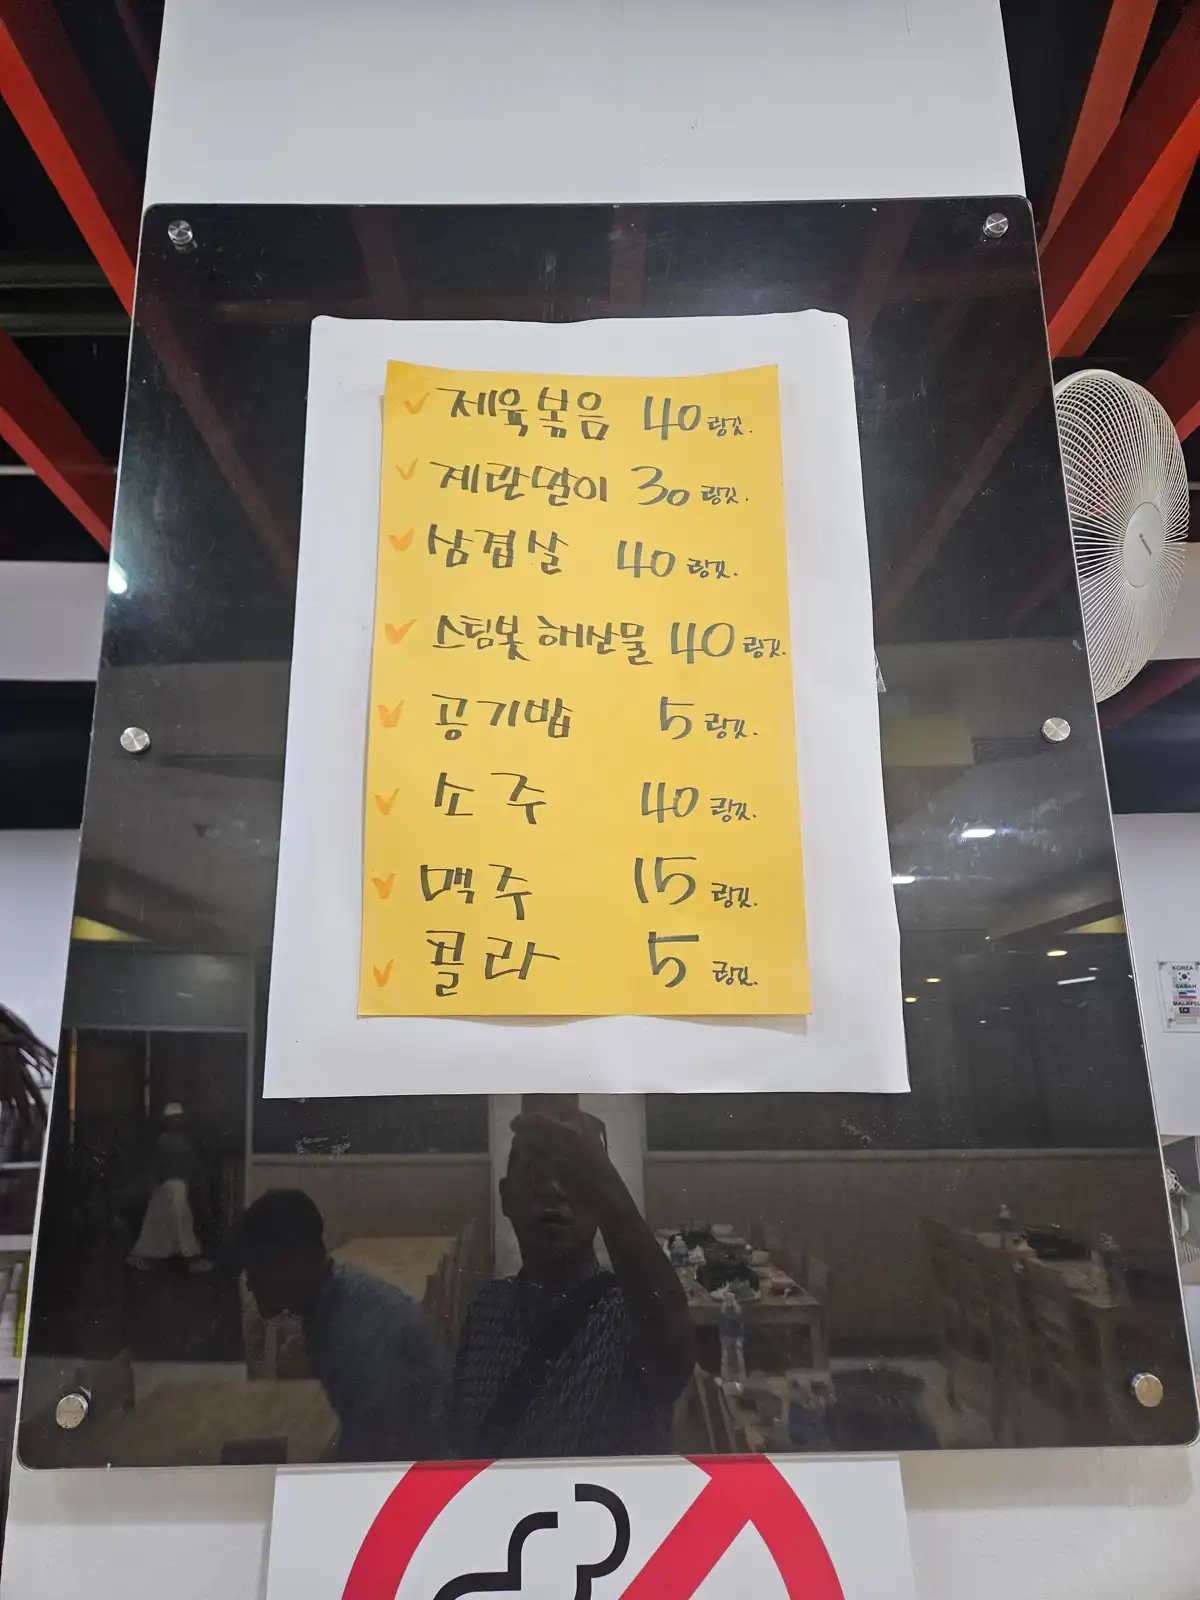 제육볶음 40 링깃.
계란말이 30 링깃.
삼겹살 40 링깃.
스팀봇 해산물 40 링깃.
공기밥 5 링깃.
소주 40 링깃.
맥주 15 링깃.
콜라 5 링깃.
KOREA
SABAH